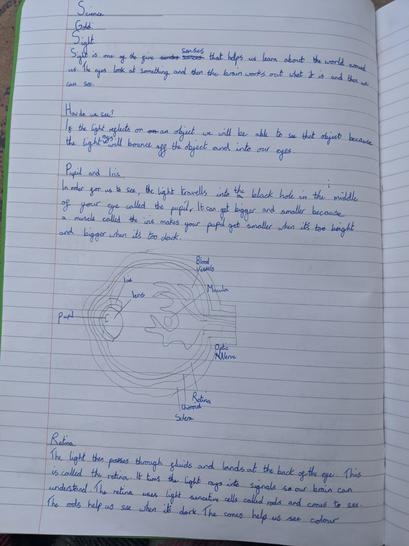 Science
Gold
Sight
Sight is one of the five senses that helps us learn about the world around
us. The eyes look at something and then the brain works out what it is and then we
can see.
How do we see?
If the light reflects on an object we will be able to see that object because
the light will bounce off the object and into our eyes.
Pupil and Iris
In order for us to see, the light travells into the black hole in the middle
of your eye called the pupil. It can get bigger and smaller because
a muscle called the iris makes your pupil get smaller when it's too bright
and bigger when it's too dark.
Blood
Vessels
Iris
Lens
Macula
Pupil
Optic
Nerve
Retina
Choroid
Sclera
Retina
The light then passes through fluids and lands at the back of the eye. This
is called the retina. It turns the light rays into signals so our brain can
understand. The retina uses light sensetive cells called rods and cones to see.
The rods help us see when it's dark. The cones help us see colour